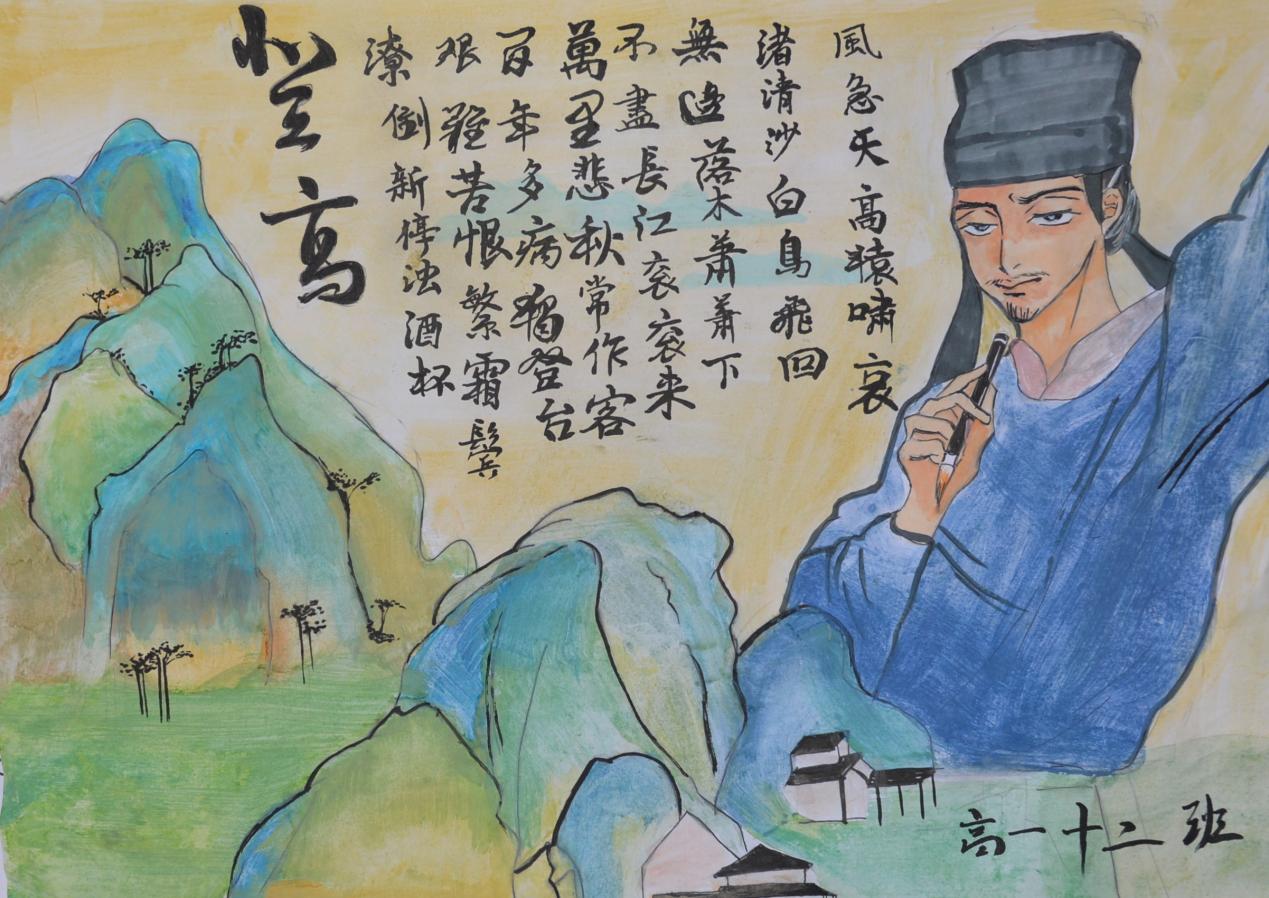 登高
風急天高猿嘯哀
渚清沙白鳥飛回
無邊落木蕭蕭下
不盡長江衮衮来
萬里悲秋常作客
百年多病獨登台
艰難苦恨繁霜鬂
潦倒新停浊酒杯
高一十二班